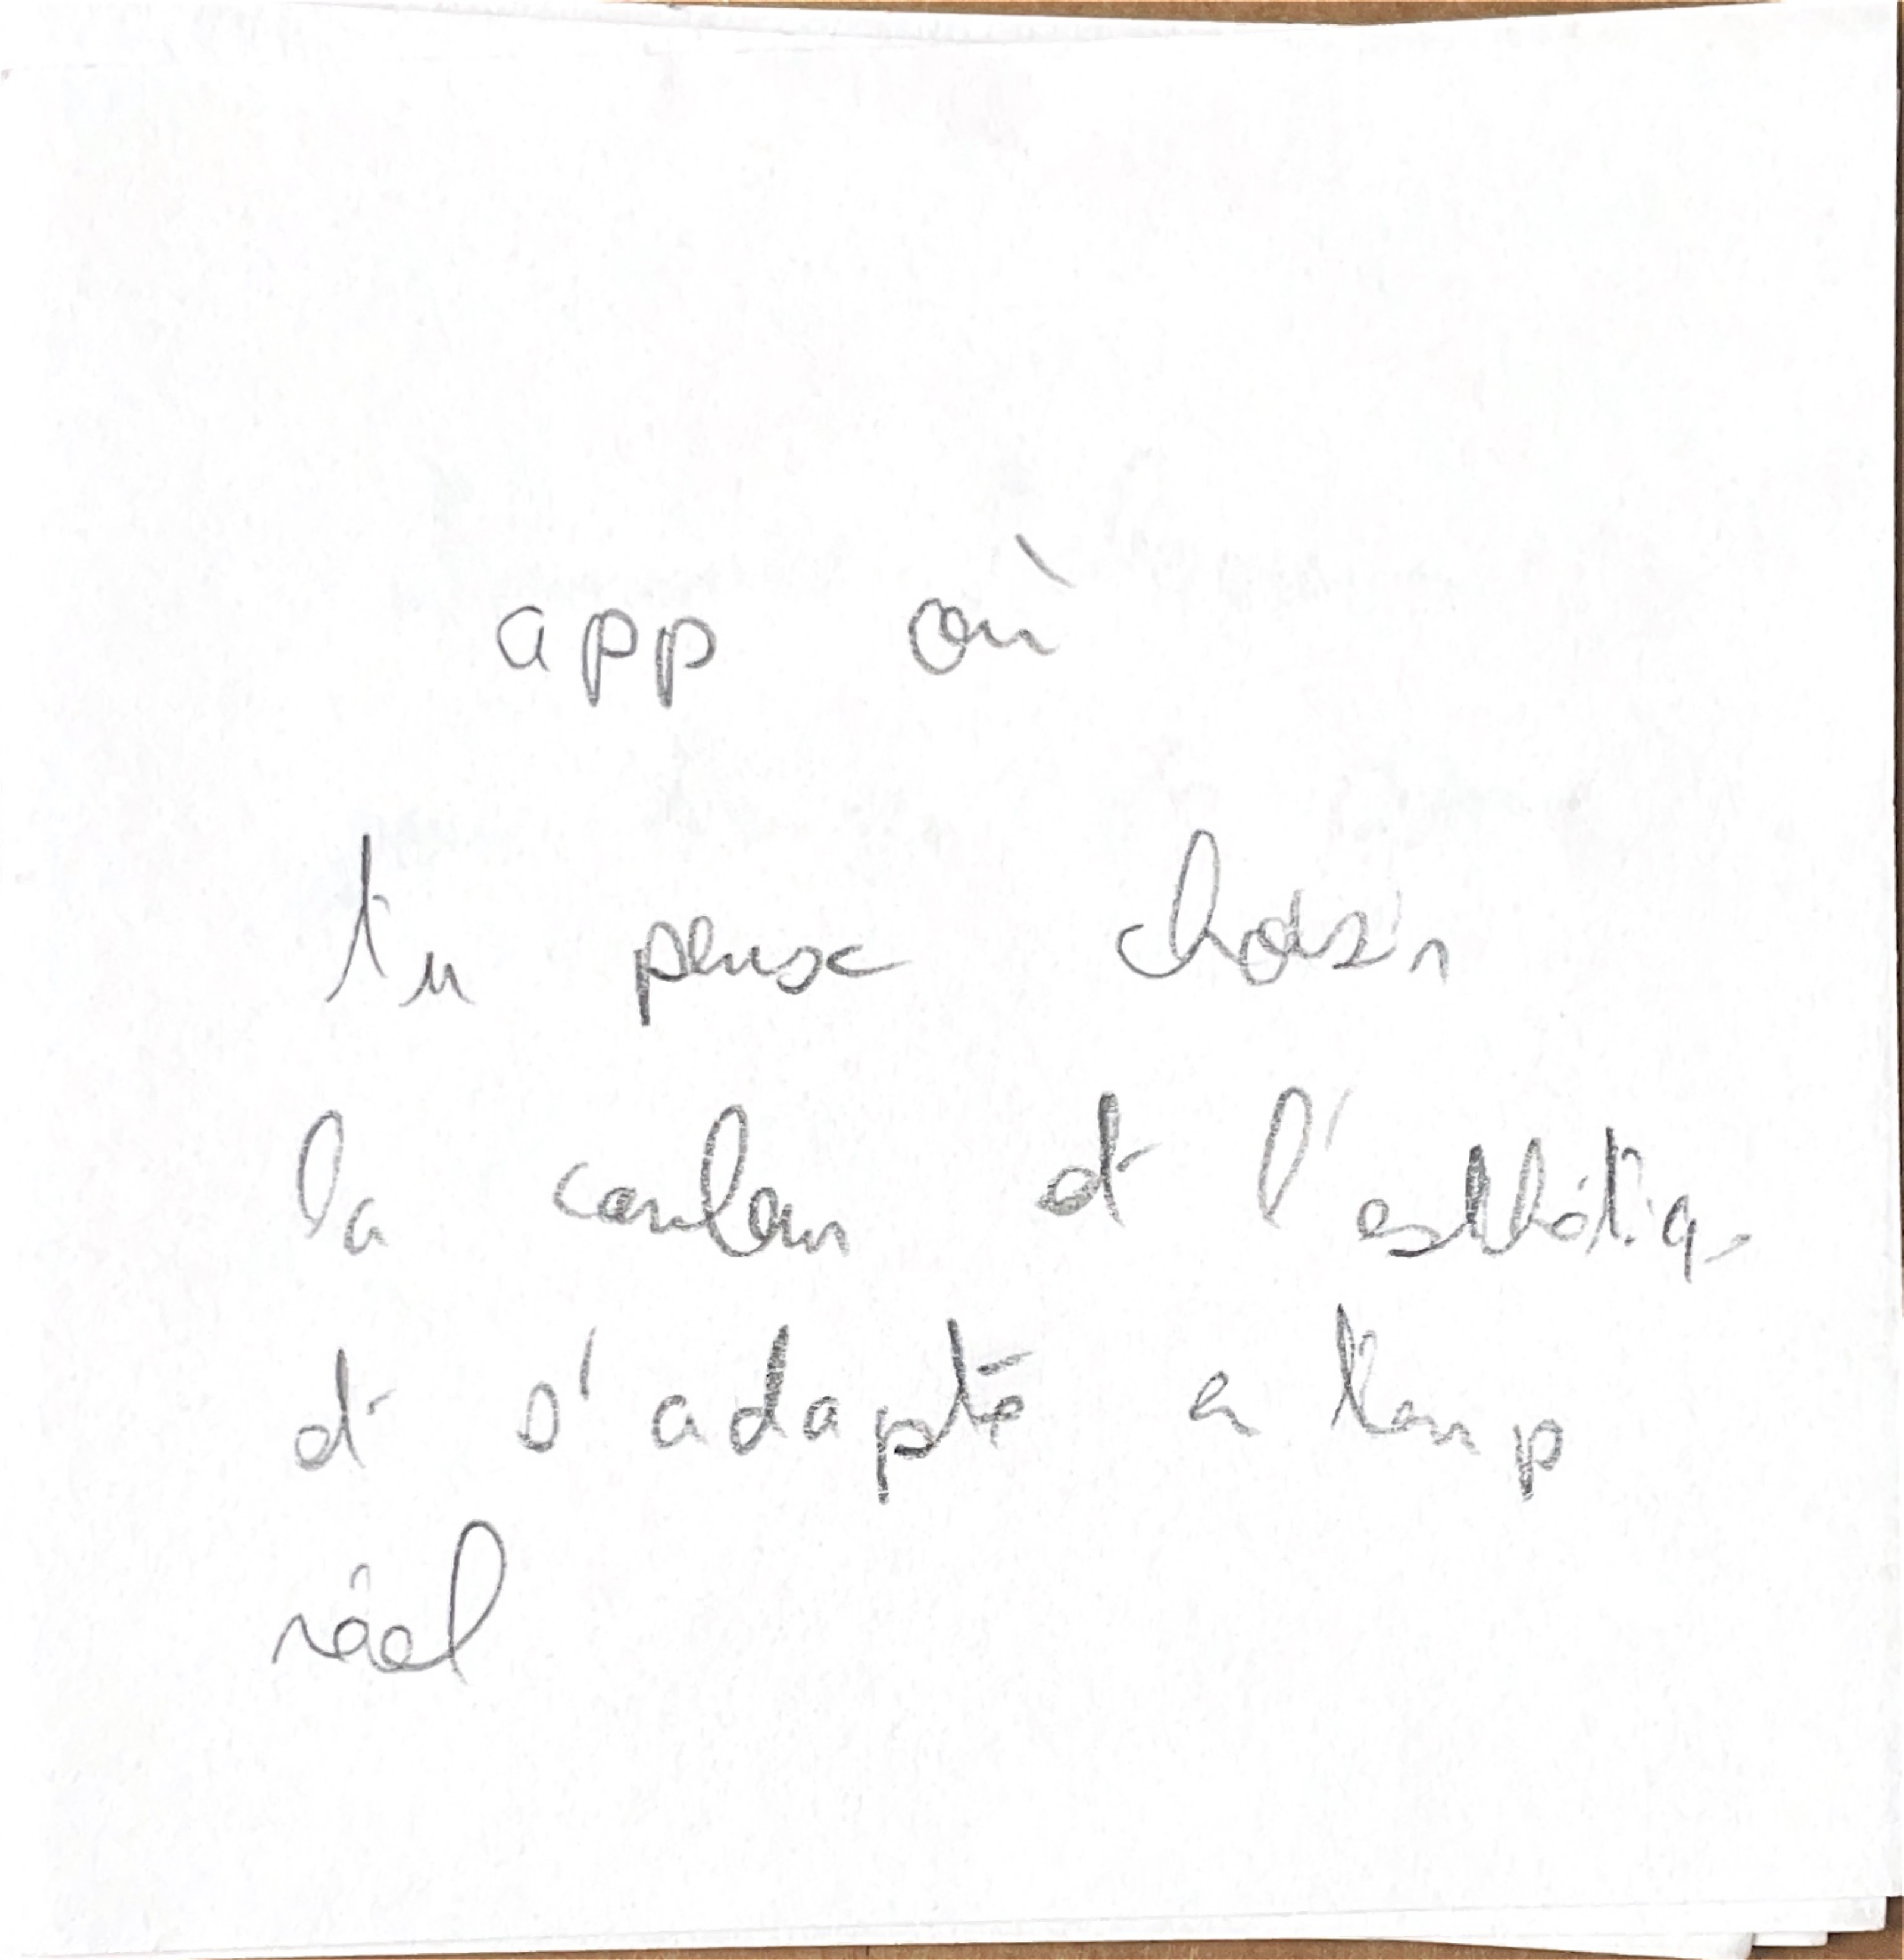 app où
tu peux choisir
la couleur et l'esthétiq
et s'adapte en temp
réel